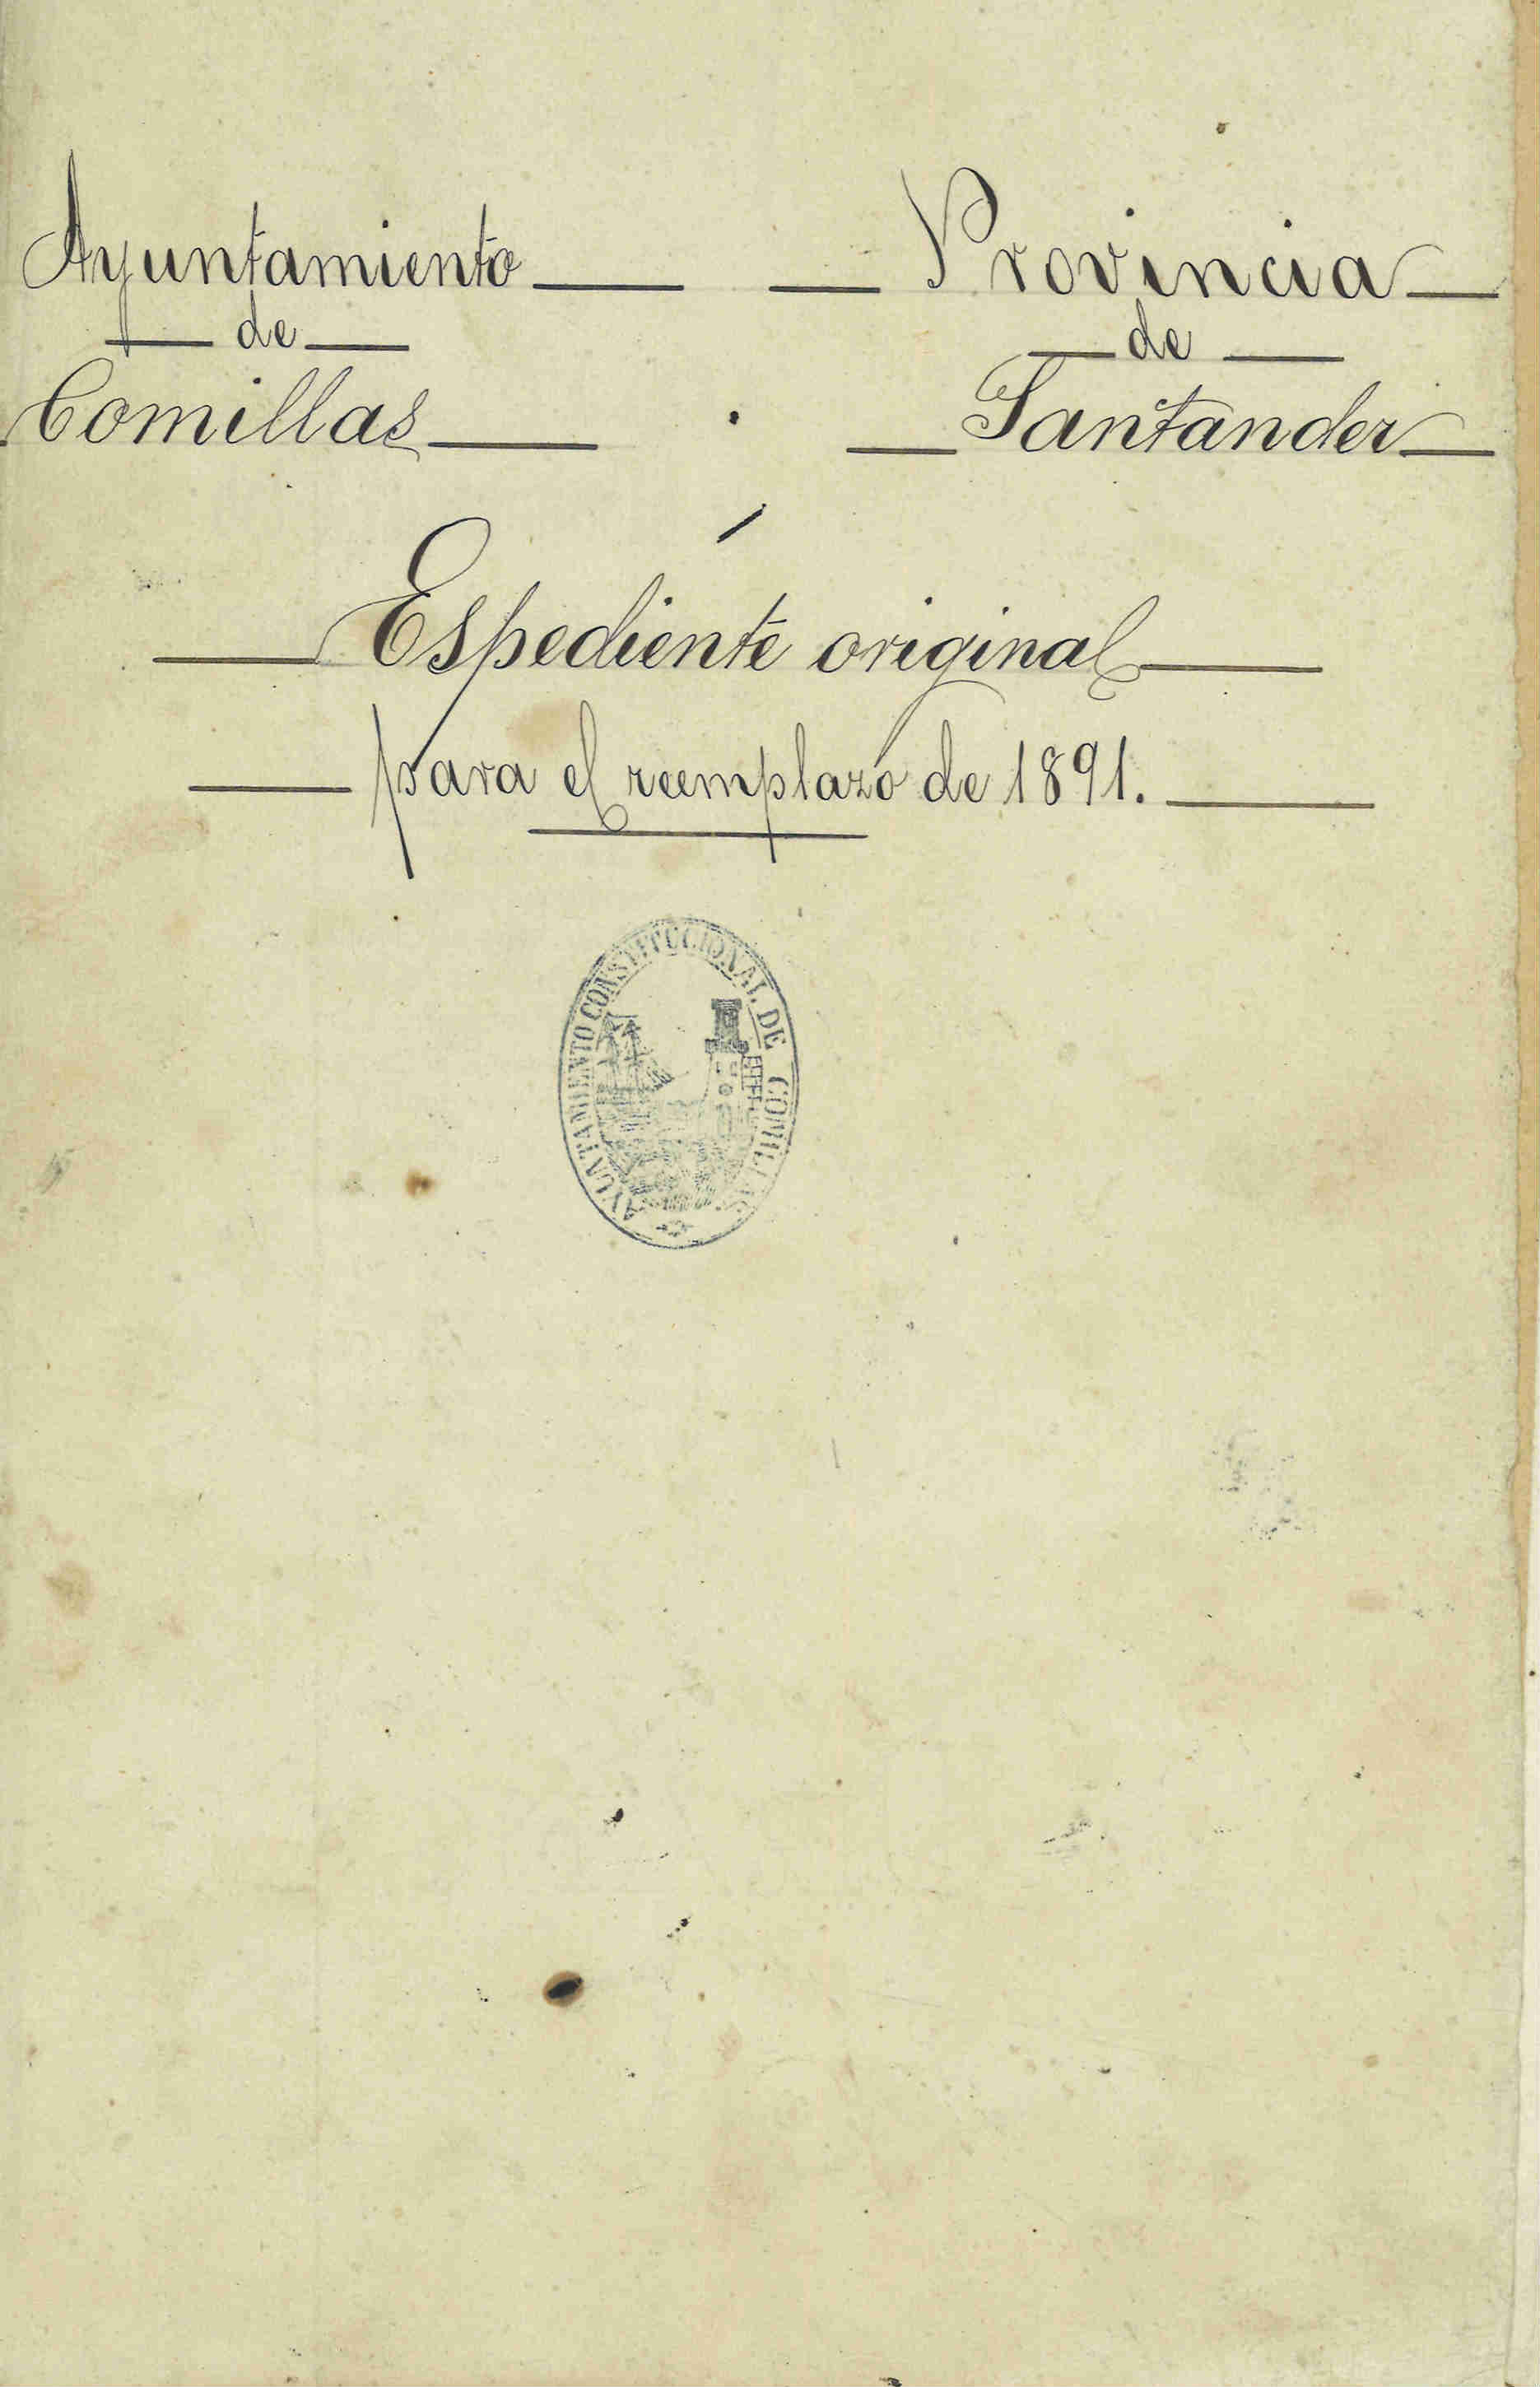 Ayuntamiento
de
Comillas
Provincia
de
Santander
Espediente original
para el reemplazo de 1891.
AYUNTAMIENTO CONSTITUCIONAL DE COMILLAS